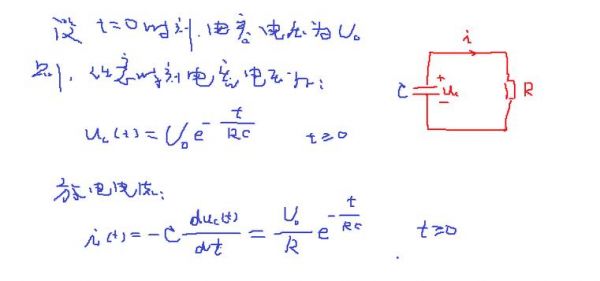 设 t=0时刻,电容电压为U₀
则,任意时刻电容电压为:
u_c(t) = U₀ e^{-t/RC}  t≥0
放电电流:
i(t) = -C du_c(t)/dt = U₀/R e^{-t/RC}  t≥0
i
C
+
u_c
-
R